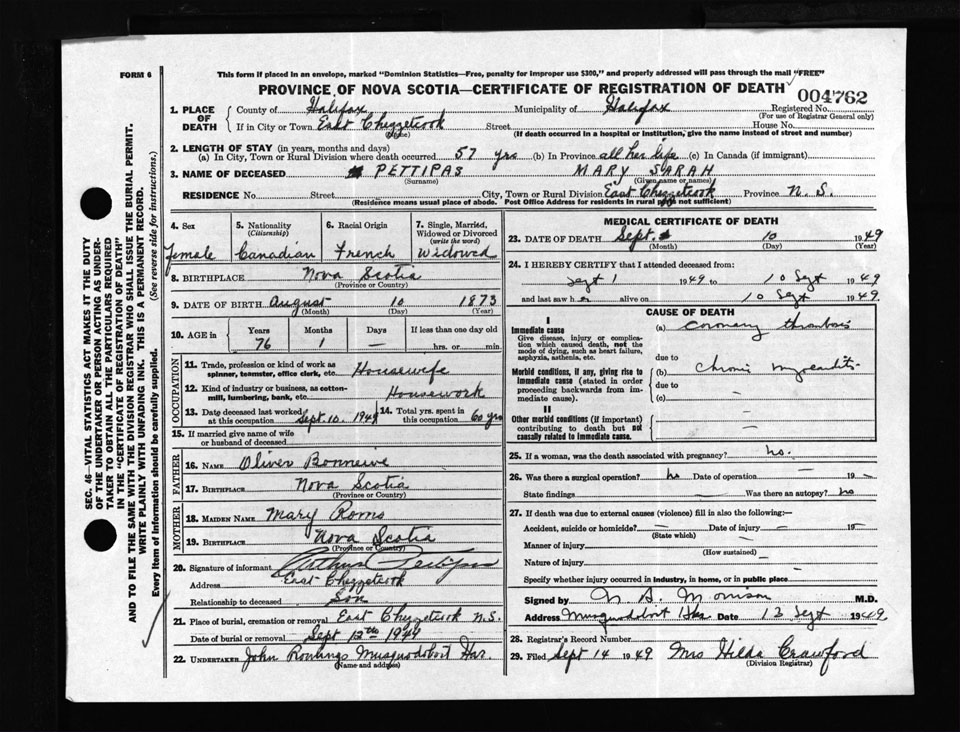 FORM 6
This form if placed in an envelope, marked "Dominion Statistics—Free, penalty for improper use $300," and properly addressed will pass through the mail "FREE"
PROVINCE OF NOVA SCOTIA—CERTIFICATE OF REGISTRATION OF DEATH
004762
1. PLACE OF DEATH
County of Halifax Municipality of Halifax Registered No.
(For use of Registrar General only)
If in City or Town East Chezzetcook Street House No.
(If death occurred in a hospital or institution, give the name instead of street and number)
2. LENGTH OF STAY (in years, months and days)
(a) In City, Town or Rural Division where death occurred 57 yrs (b) In Province all her life (c) In Canada (if immigrant)
3. NAME OF DECEASED PETTIPAS MARY SARAH
(Surname) (Given name or names)
RESIDENCE No. Street City, Town or Rural Division East Chezzetcook Province N.S.
(Residence means usual place of abode. Post Office Address for residents in rural not sufficient)
4. Sex
Female
5. Nationality
(Citizenship)
Canadian
6. Racial Origin
French
7. Single, Married, Widowed or Divorced
(write the word)
Widowed
8. BIRTHPLACE Nova Scotia
(Province or Country)
9. DATE OF BIRTH August 10 1873
(Month) (Day) (Year)
10. AGE in
Years Months Days If less than one day old
76 1 — hrs. or min.
OCCUPATION
11. Trade, profession or kind of work as
spinner, teamster, office clerk, etc. Housewife
12. Kind of industry or business, as cotton-
mill, lumbering, bank, etc. Housework
13. Date deceased last worked
at this occupation Sept. 10. 1949
14. Total yrs. spent in
this occupation 60 yrs
15. If married give name of wife
or husband of deceased
FATHER
16. NAME Oliver Bonneive
17. BIRTHPLACE Nova Scotia
(Province or Country)
MOTHER
18. MAIDEN NAME Mary Roms
19. BIRTHPLACE Nova Scotia
(Province or Country)
20. Signature of informant Arthur Pettipas
Address East Chezzetcook
Relationship to deceased Son
21. Place of burial, cremation or removal East Chezzetcook N.S.
Date of burial or removal Sept 12th 1949
22. UNDERTAKER John Rowlings Musquodoboit Har.
(Name and address)
MEDICAL CERTIFICATE OF DEATH
23. DATE OF DEATH Sept. 10 1949
(Month) (Day) (Year)
24. I HEREBY CERTIFY that I attended deceased from
Sept 1 1949 to 10 Sept 1949
and last saw her alive on 10 Sept 1949.
CAUSE OF DEATH
I
Immediate cause
Give disease, injury or complica-
tion which caused death, not the
mode of dying, such as heart failure,
asphyxia, asthenia, etc.
(a) coronary thrombosis
due to
Morbid conditions, if any, giving rise to
immediate cause (stated in order
proceeding backwards from im-
mediate cause).
(b) chronic myocarditis
due to
(c) —
II
Other morbid conditions (if important)
contributing to death but not
causally related to immediate cause.
25. If a woman, was the death associated with pregnancy? no.
26. Was there a surgical operation? no Date of operation — 19 —
State findings — Was there an autopsy? no
27. If death was due to external causes (violence) fill in also the following:—
Accident, suicide or homicide? — Date of injury — 19 —
(State which)
Manner of injury —
(How sustained)
Nature of injury —
Specify whether injury occurred in industry, in home, or in public place —
Signed by M.D.
Address Musquodoboit Hbr Date 13 Sept 1949
28. Registrar's Record Number
29. Filed Sept 14 1949 Mrs Hilda Crawford
(Division Registrar)
SEC. 46—VITAL STATISTICS ACT MAKES IT THE DUTY
OF THE UNDERTAKER OR PERSON ACTING AS UNDER-
TAKER TO OBTAIN ALL THE PARTICULARS REQUIRED
IN THE "CERTIFICATE OF REGISTRATION OF DEATH"
AND TO FILE THE SAME WITH THE DIVISION REGISTRAR WHO SHALL ISSUE THE BURIAL PERMIT.
WRITE PLAINLY WITH UNFADING INK. THIS IS A PERMANENT RECORD.
Every item of information should be carefully supplied. (See reverse side for instructions.)